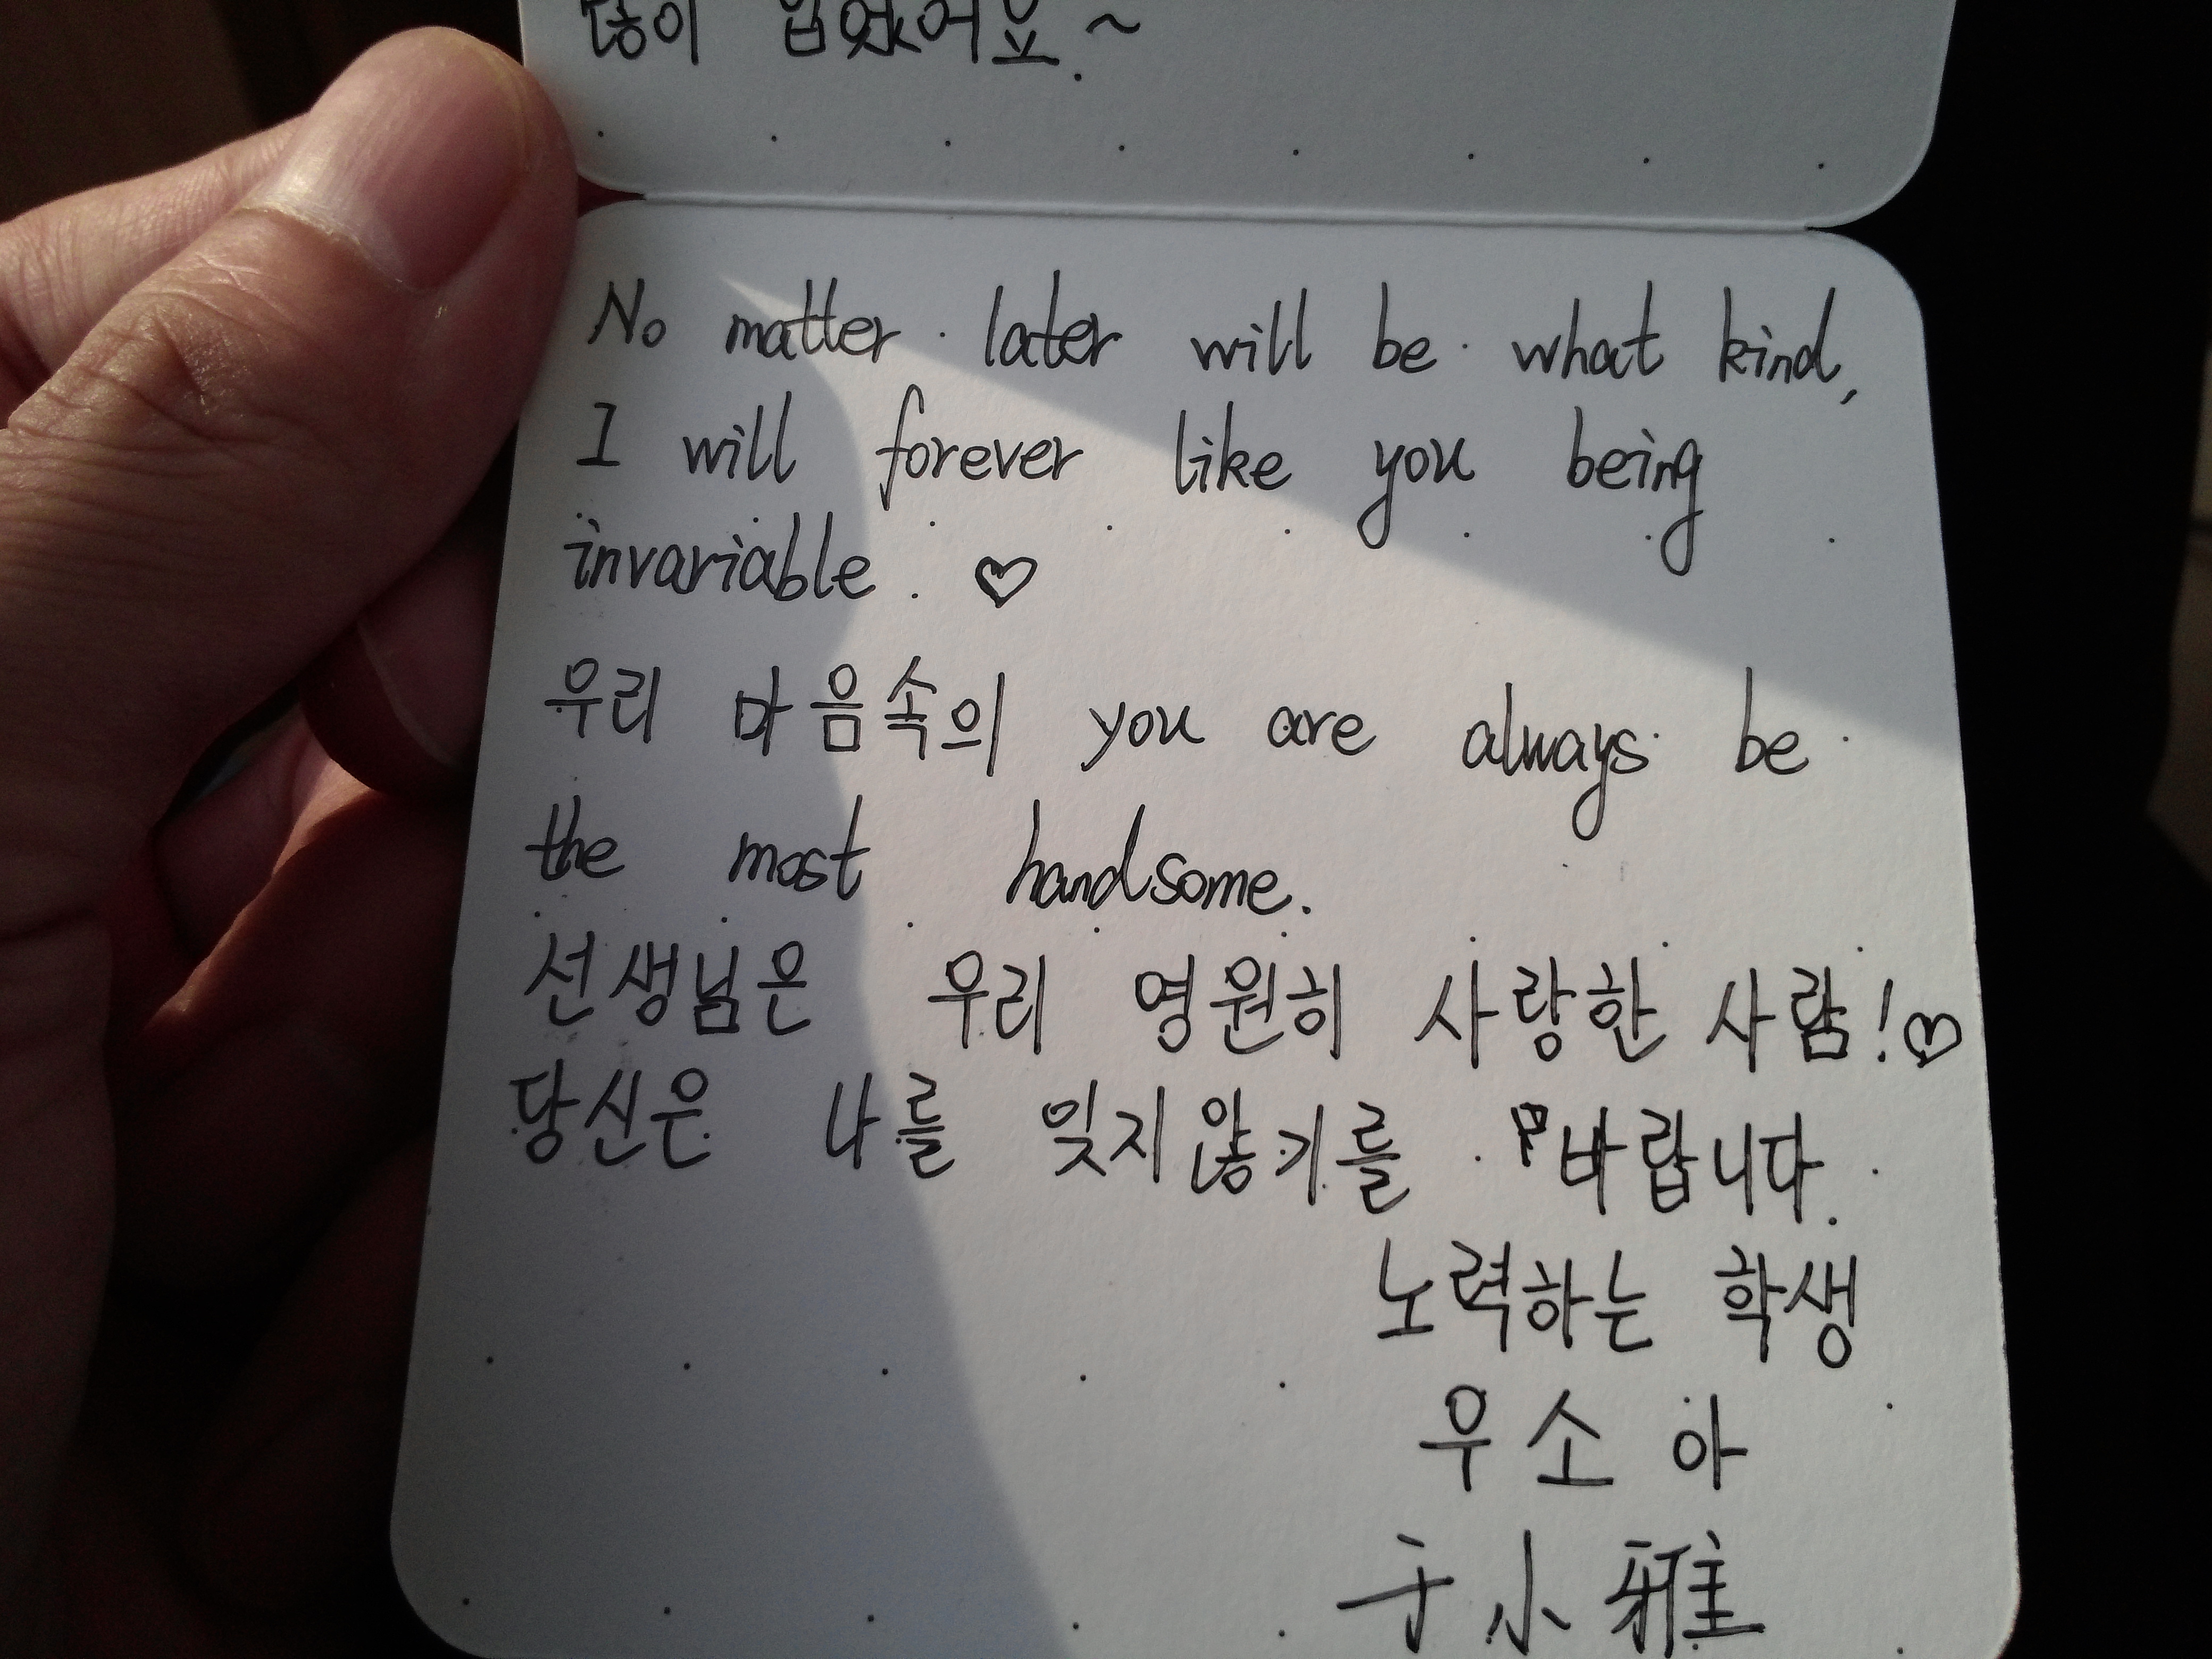 많이 입었어요~.
No matter later will be what kind,
I will forever like you being
invariable. ♡
우리 마음속의 you are always be
the most handsome.
선생님은 우리 영원히 사랑한 사람!♡
당신은 나를 잊지않기를 바랍니다.
노력하는 학생
우소아
于小雅